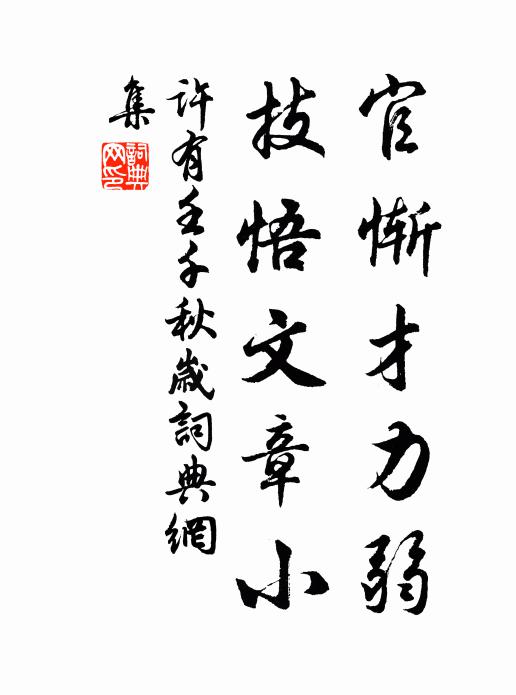 官惭才力弱
技悟文章小
許有壬千秋歲詞典網
集
詞典
网印